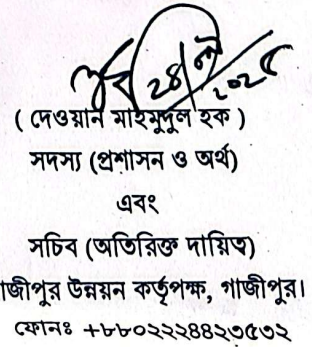 ২৪/০৮/২০২৫
( দেওয়ান মাহমুদুল হক )
সদস্য (প্রশাসন ও অর্থ)
এবং
সচিব (অতিরিক্ত দায়িত্ব)
াজীপুর উন্নয়ন কর্তৃপক্ষ, গাজীপুর।
ফোনঃ +৮৮০২২২৪৪২৩৫৩২